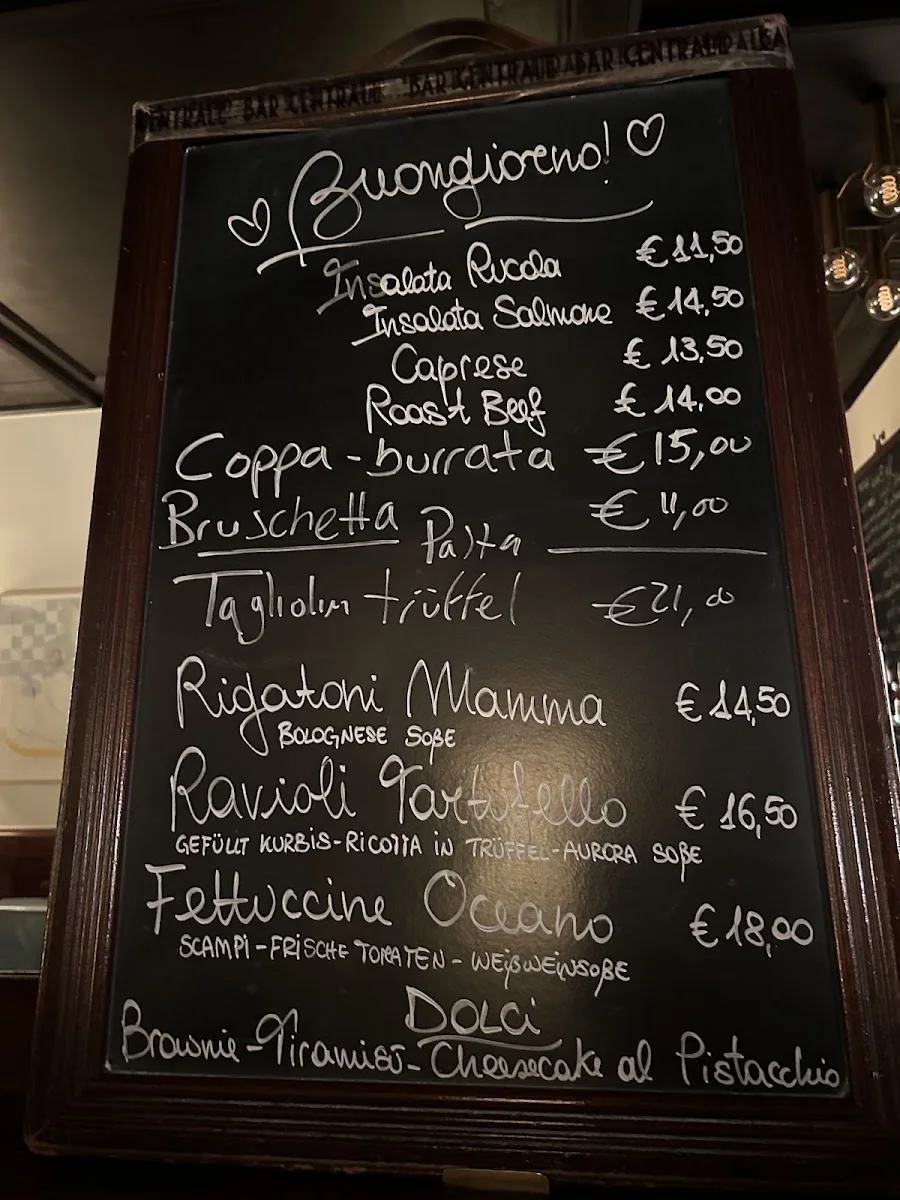 BAR CENTRALE BAR CENTRALE BAR CENTRALE
♡ Buongiorno! ♡
Insalata Rucola € 11,50
Insalata Salmone € 14,50
Caprese € 13,50
Roast Beef € 14,00
Coppa-burrata € 15,00
Bruschetta € 11,00
Pasta
Tagliolini trüffel € 21,00
Rigatoni Mamma € 14,50
BOLOGNESE SOßE
Ravioli Tartufello € 16,50
GEFÜLLT KURBIS-RICOTTA IN TRÜFFEL-AURORA SOßE
Fettuccine Oceano € 18,00
SCAMPI-FRISCHE TOMATEN - WEIßWEINSOßE
DOLCI
Brownie-Tiramisù-Cheesecake al Pistacchio